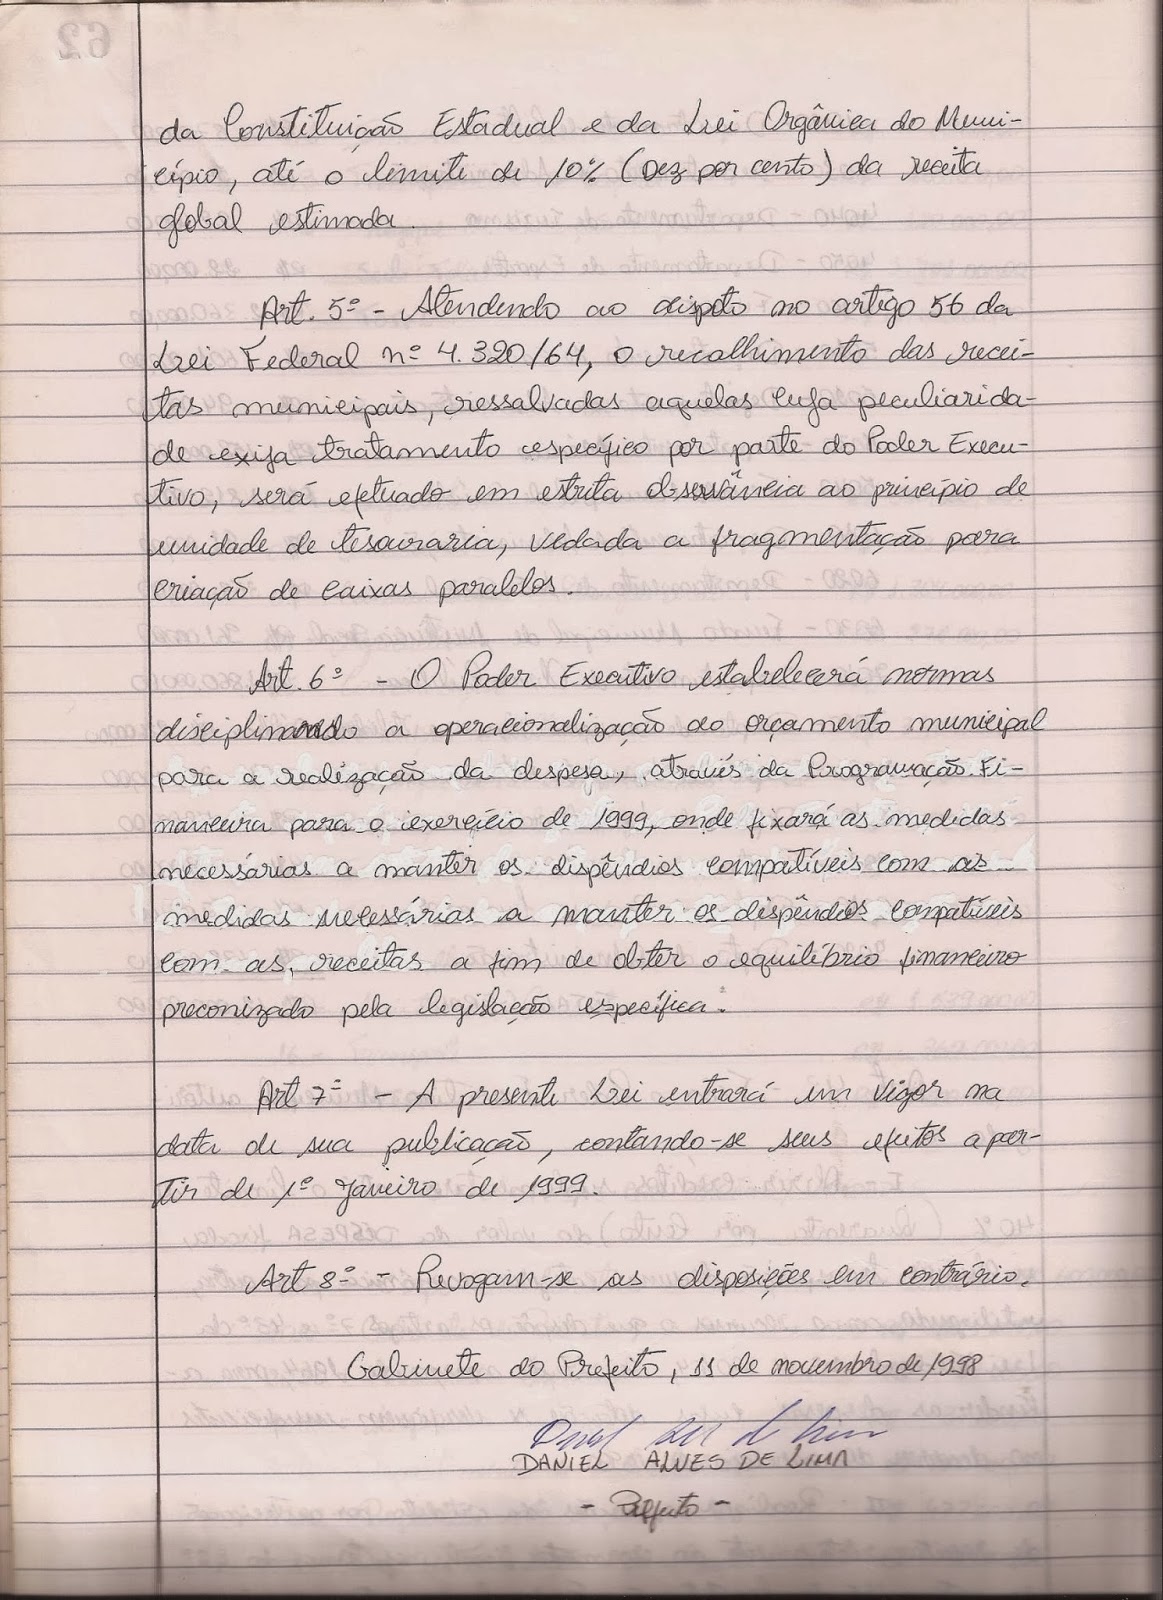 62
da Constituição Estadual e da Lei Orgânica do Muni-
cípio, até o limite de 10% (Dez por cento) da receita
global estimada.
Art. 5º - Atendendo ao dispoto no artigo 56 da
Lei Federal nº 4.320/64, o recolhimento das recei-
tas municipais, ressalvadas aquelas cuja peculiarida-
de exija tratamento específico por parte do Poder Execu-
tivo, será efetuado em estrita observância ao princípio de
unidade de tesouraria, vedada a fragmentação para
criação de caixas paralelos.
Art. 6º - O Poder Executivo estabelecerá normas
disciplinando a operacionalização do orçamento municipal
para a realização da despesa, através da Programação Fi-
nanceira para o exercício de 1999, onde fixará as medidas
necessárias a manter os dispêndios compatíveis com as
medidas necessárias a manter os dispêndios compatíveis
com as, receitas a fim de obter o equilíbrio financeiro
preconizado pela legislação específica.
Art 7º - A presente Lei entrará em vigor na
data de sua publicação, contando-se seus efeitos a par-
tir de 1º Janeiro de 1999.
Art 8º - Revogam-se as disposições em contrário.
Gabinete do Prefeito, 11 de novembro de 1998
DANIEL ALVES DE LIMA
- Prefeito -